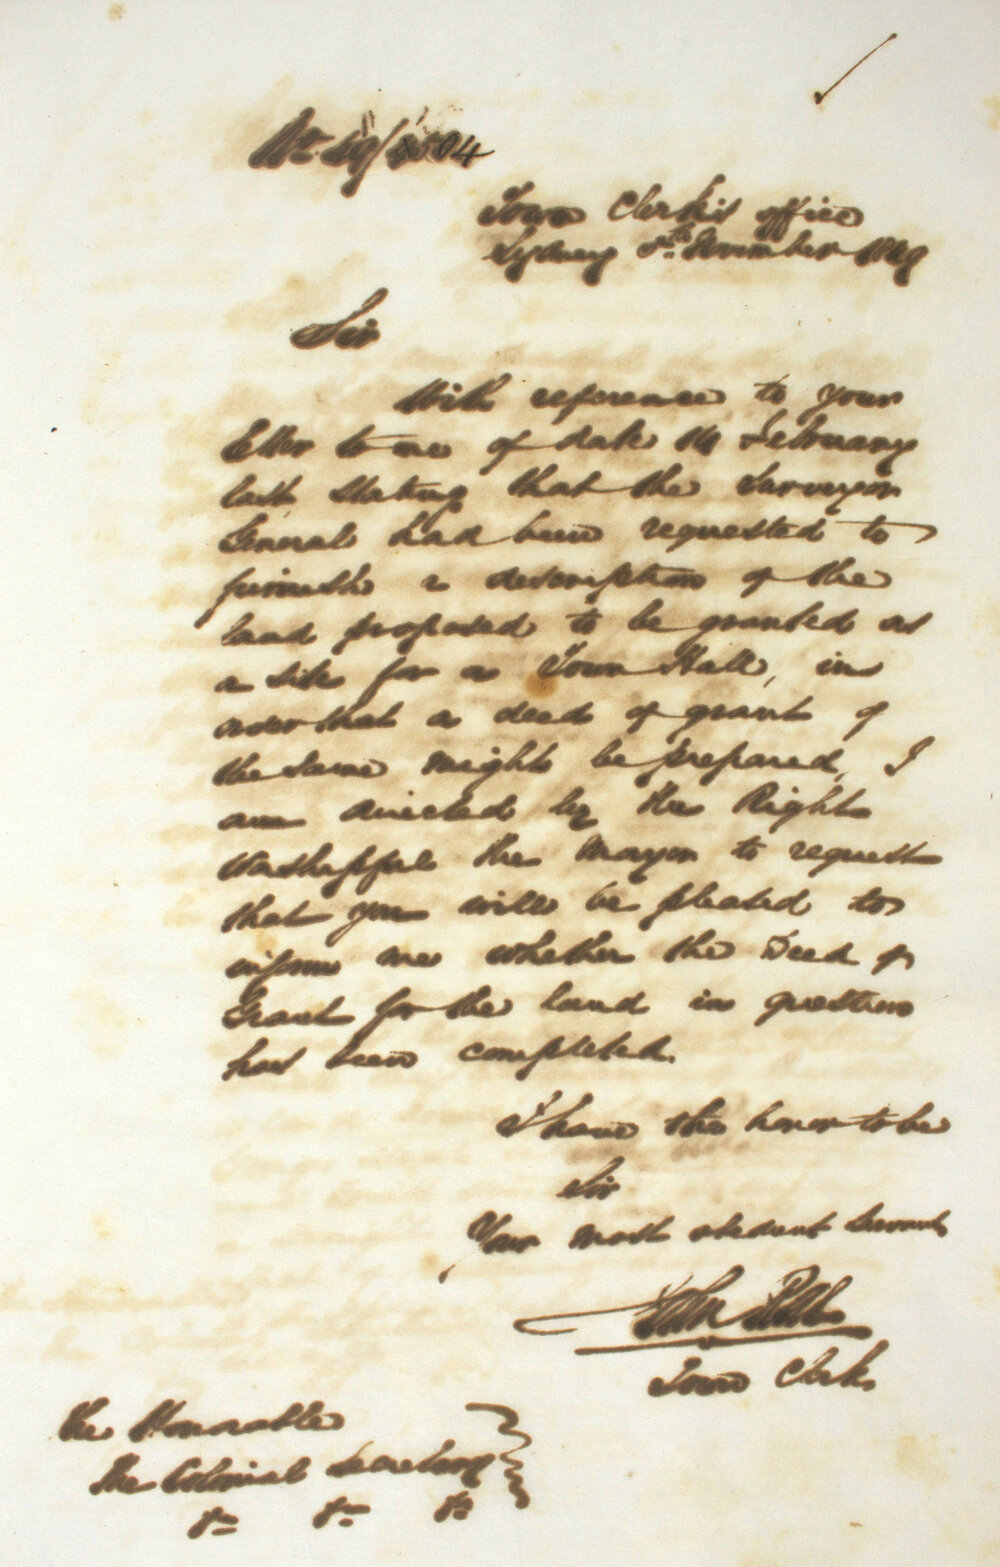 No. 49/
Town Clerk's office
Sydney 5th November 1849
Sir
With reference to your
letter to me of date 14 February
last stating that the Surveyor
General had been requested to
furnish a description of the
land proposed to be granted as
a site for a Town Hall, in
order that a deed of grant of
the same might be prepared, I
am directed by the Right
Worshipful the Mayor to request
that you will be pleased to
inform me whether the Deed of
Grant for the land in question
has been completed.
I have the honor to be
Sir
Your most obedient servant
John
Town Clerk
The Honorable
The Colonial Secretary
&c &c &c